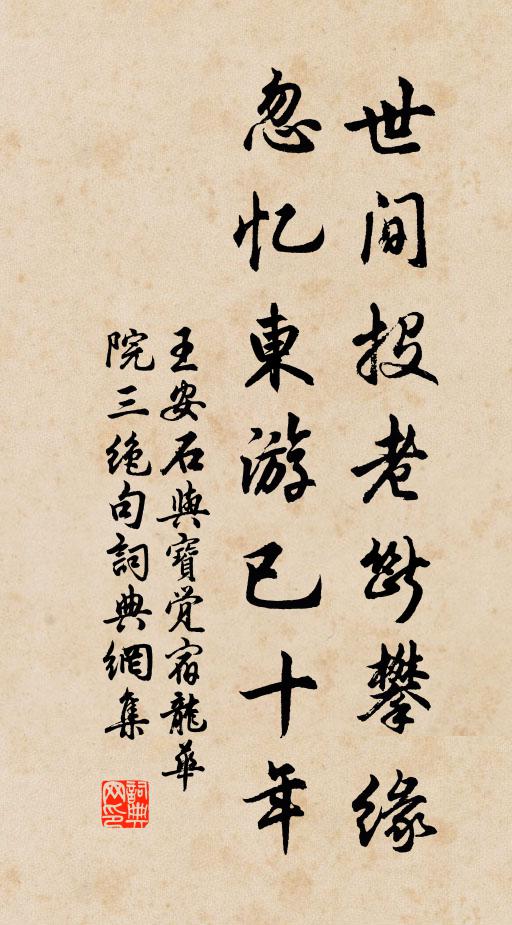 世间投老斷攀缘
忽忆東游已十年
王安石與寶覺宿龍華
院三绝句詞典網集
詞典網印